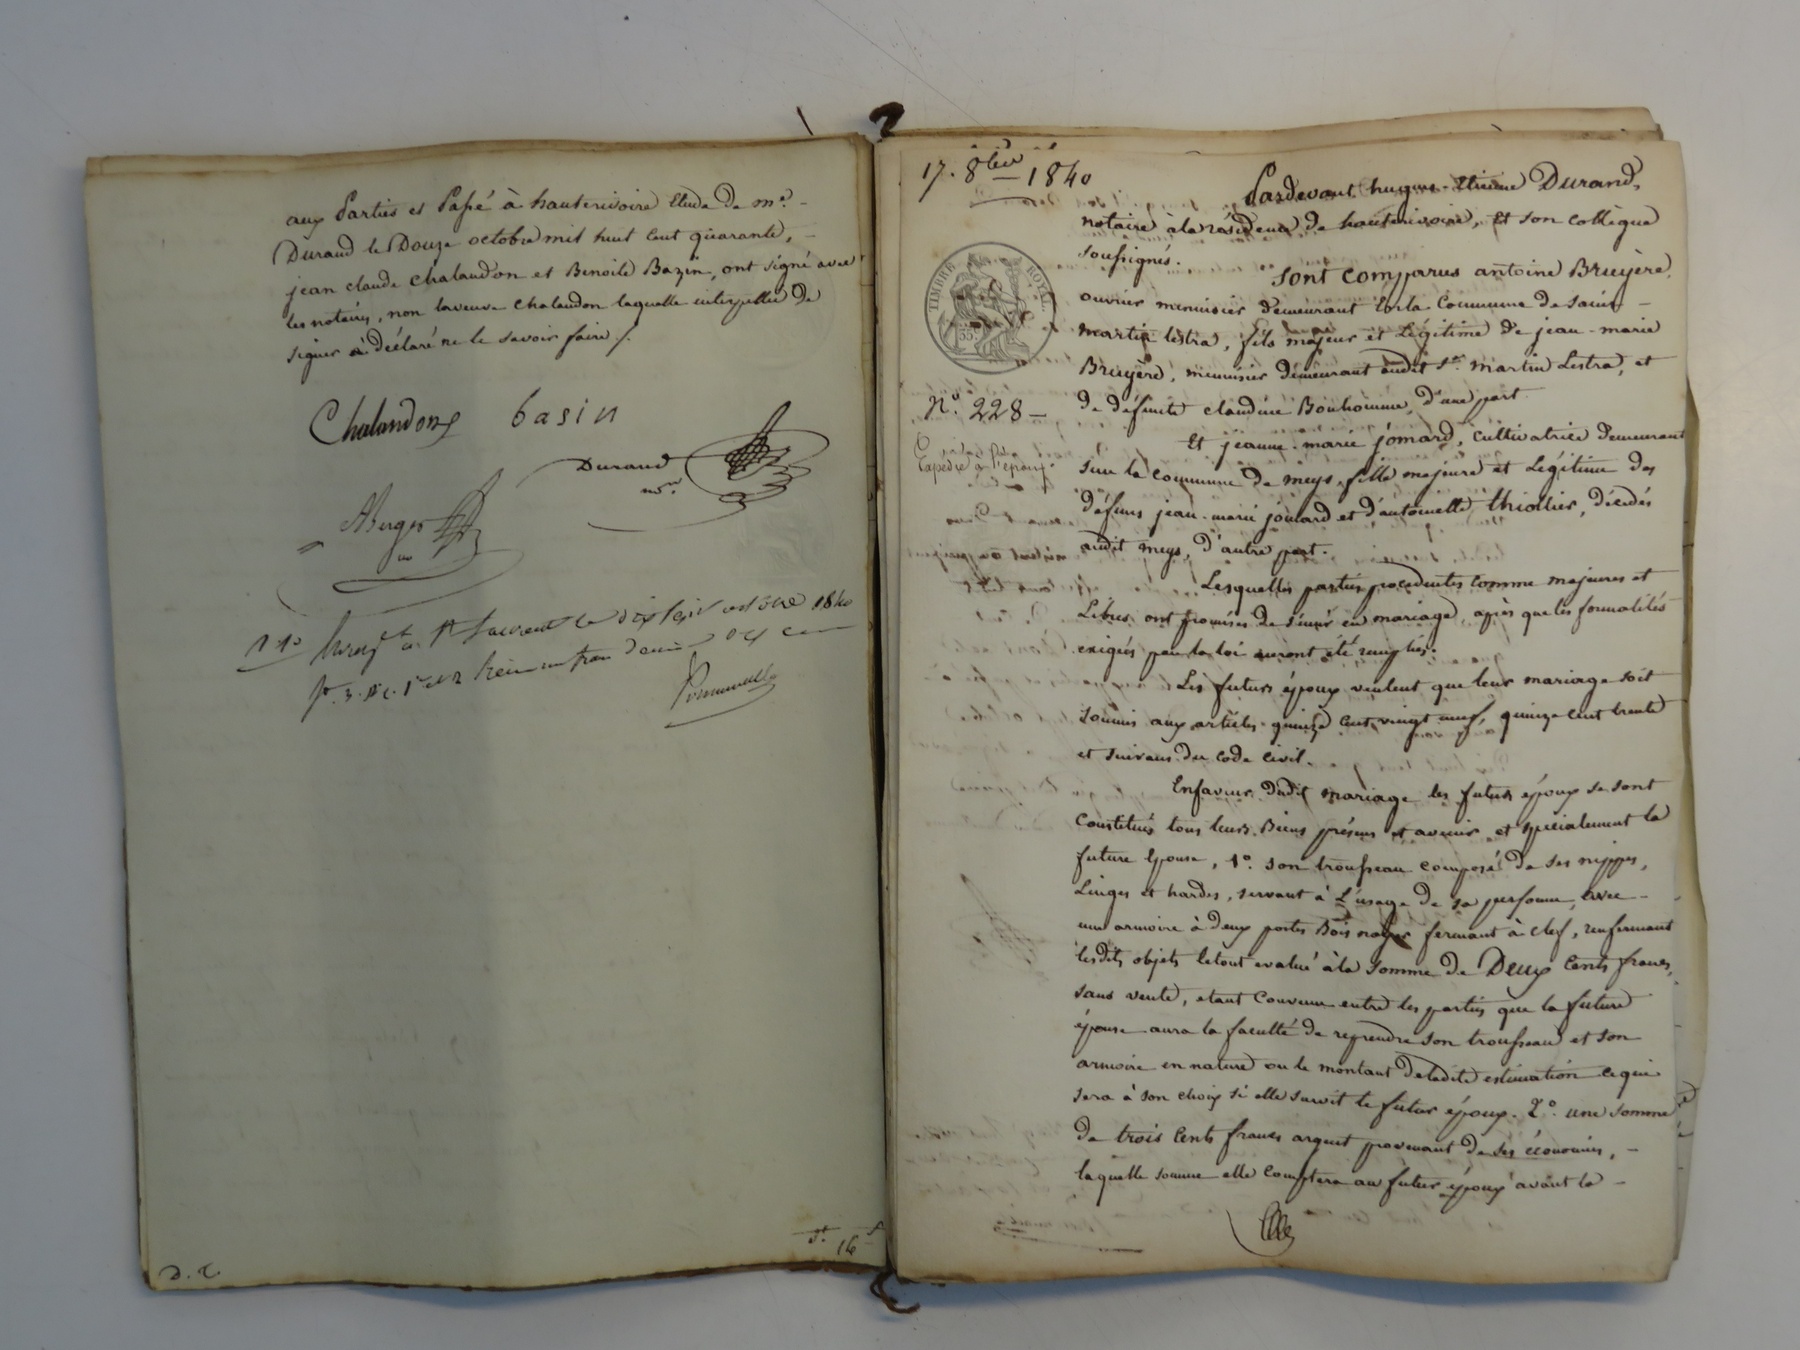 aux Parties et Passé à hauterivoire Etude de me. -
Durand le Douze octobre mil huit cent quarante, -
jean claude chalandon et Benoite Bazin, ont signé avec
les notaires, non la veuve chalandon laquelle interpellée de
signer a déclaré ne le savoir faire /.
Chalandon basin
Durand
nre.
ABerger
nre
à St Laurent le dix sept octobre 1840
D. T.
16
17. 8bre 1840
Pardevant hugues-Etienne Durand,
notaire à la résidence de hauterivoire, Et son collègue
soussignés.
Sont comparus antoine Bruyère,
ouvrier menuisier demeurant En la Commune de saint -
martin lestra, fils majeur et Légitime de jean-marie
Bruyère, menuisier demeurant audit St. martin Lestra, et
de défunte claudine Bonhomme, d'une part.
Et jeanne-marie jomard, cultivatrice demeurant
sur la commune de meys, fille majeure et Légitime des
défunts jean-marie jomard et d'antoinette thiollier, décédés
audit meys, d'autre part.
Lesquelles parties procédentes comme majeures et
Libres ont promises de s'unir en mariage, après que les formalités
exigées par la loi auront été remplies.
Les futurs époux veulent que leur mariage soit
soumis aux articles quinze cent vingt neuf, quinze cent trente
et suivans du code civil.
En faveur dudit mariage les futurs époux se sont
Constitués tous leurs Biens présens et avenir et spécialement la
future Epouse, 1o. son trousseau composé de ses nippes,
Linges et hardes, servant à L'usage de sa personne, avec -
une armoire à deux portes Bois noyer fermant à clef, renfermant
lesdits objets le tout évalué à la somme de Deux Cents francs,
sans vente, étant Convenu entre les parties que la future
épouse aura la faculté de reprendre son trousseau et son
armoire en nature ou le montant de ladite estimation ce qui
sera à son choix si elle survit le futur époux. 2o. une somme
de trois Cents francs argent provenant de ses économies, -
laquelle somme elle Comptera au futur époux avant la -
TIMBRE ROYAL
No. 228 -